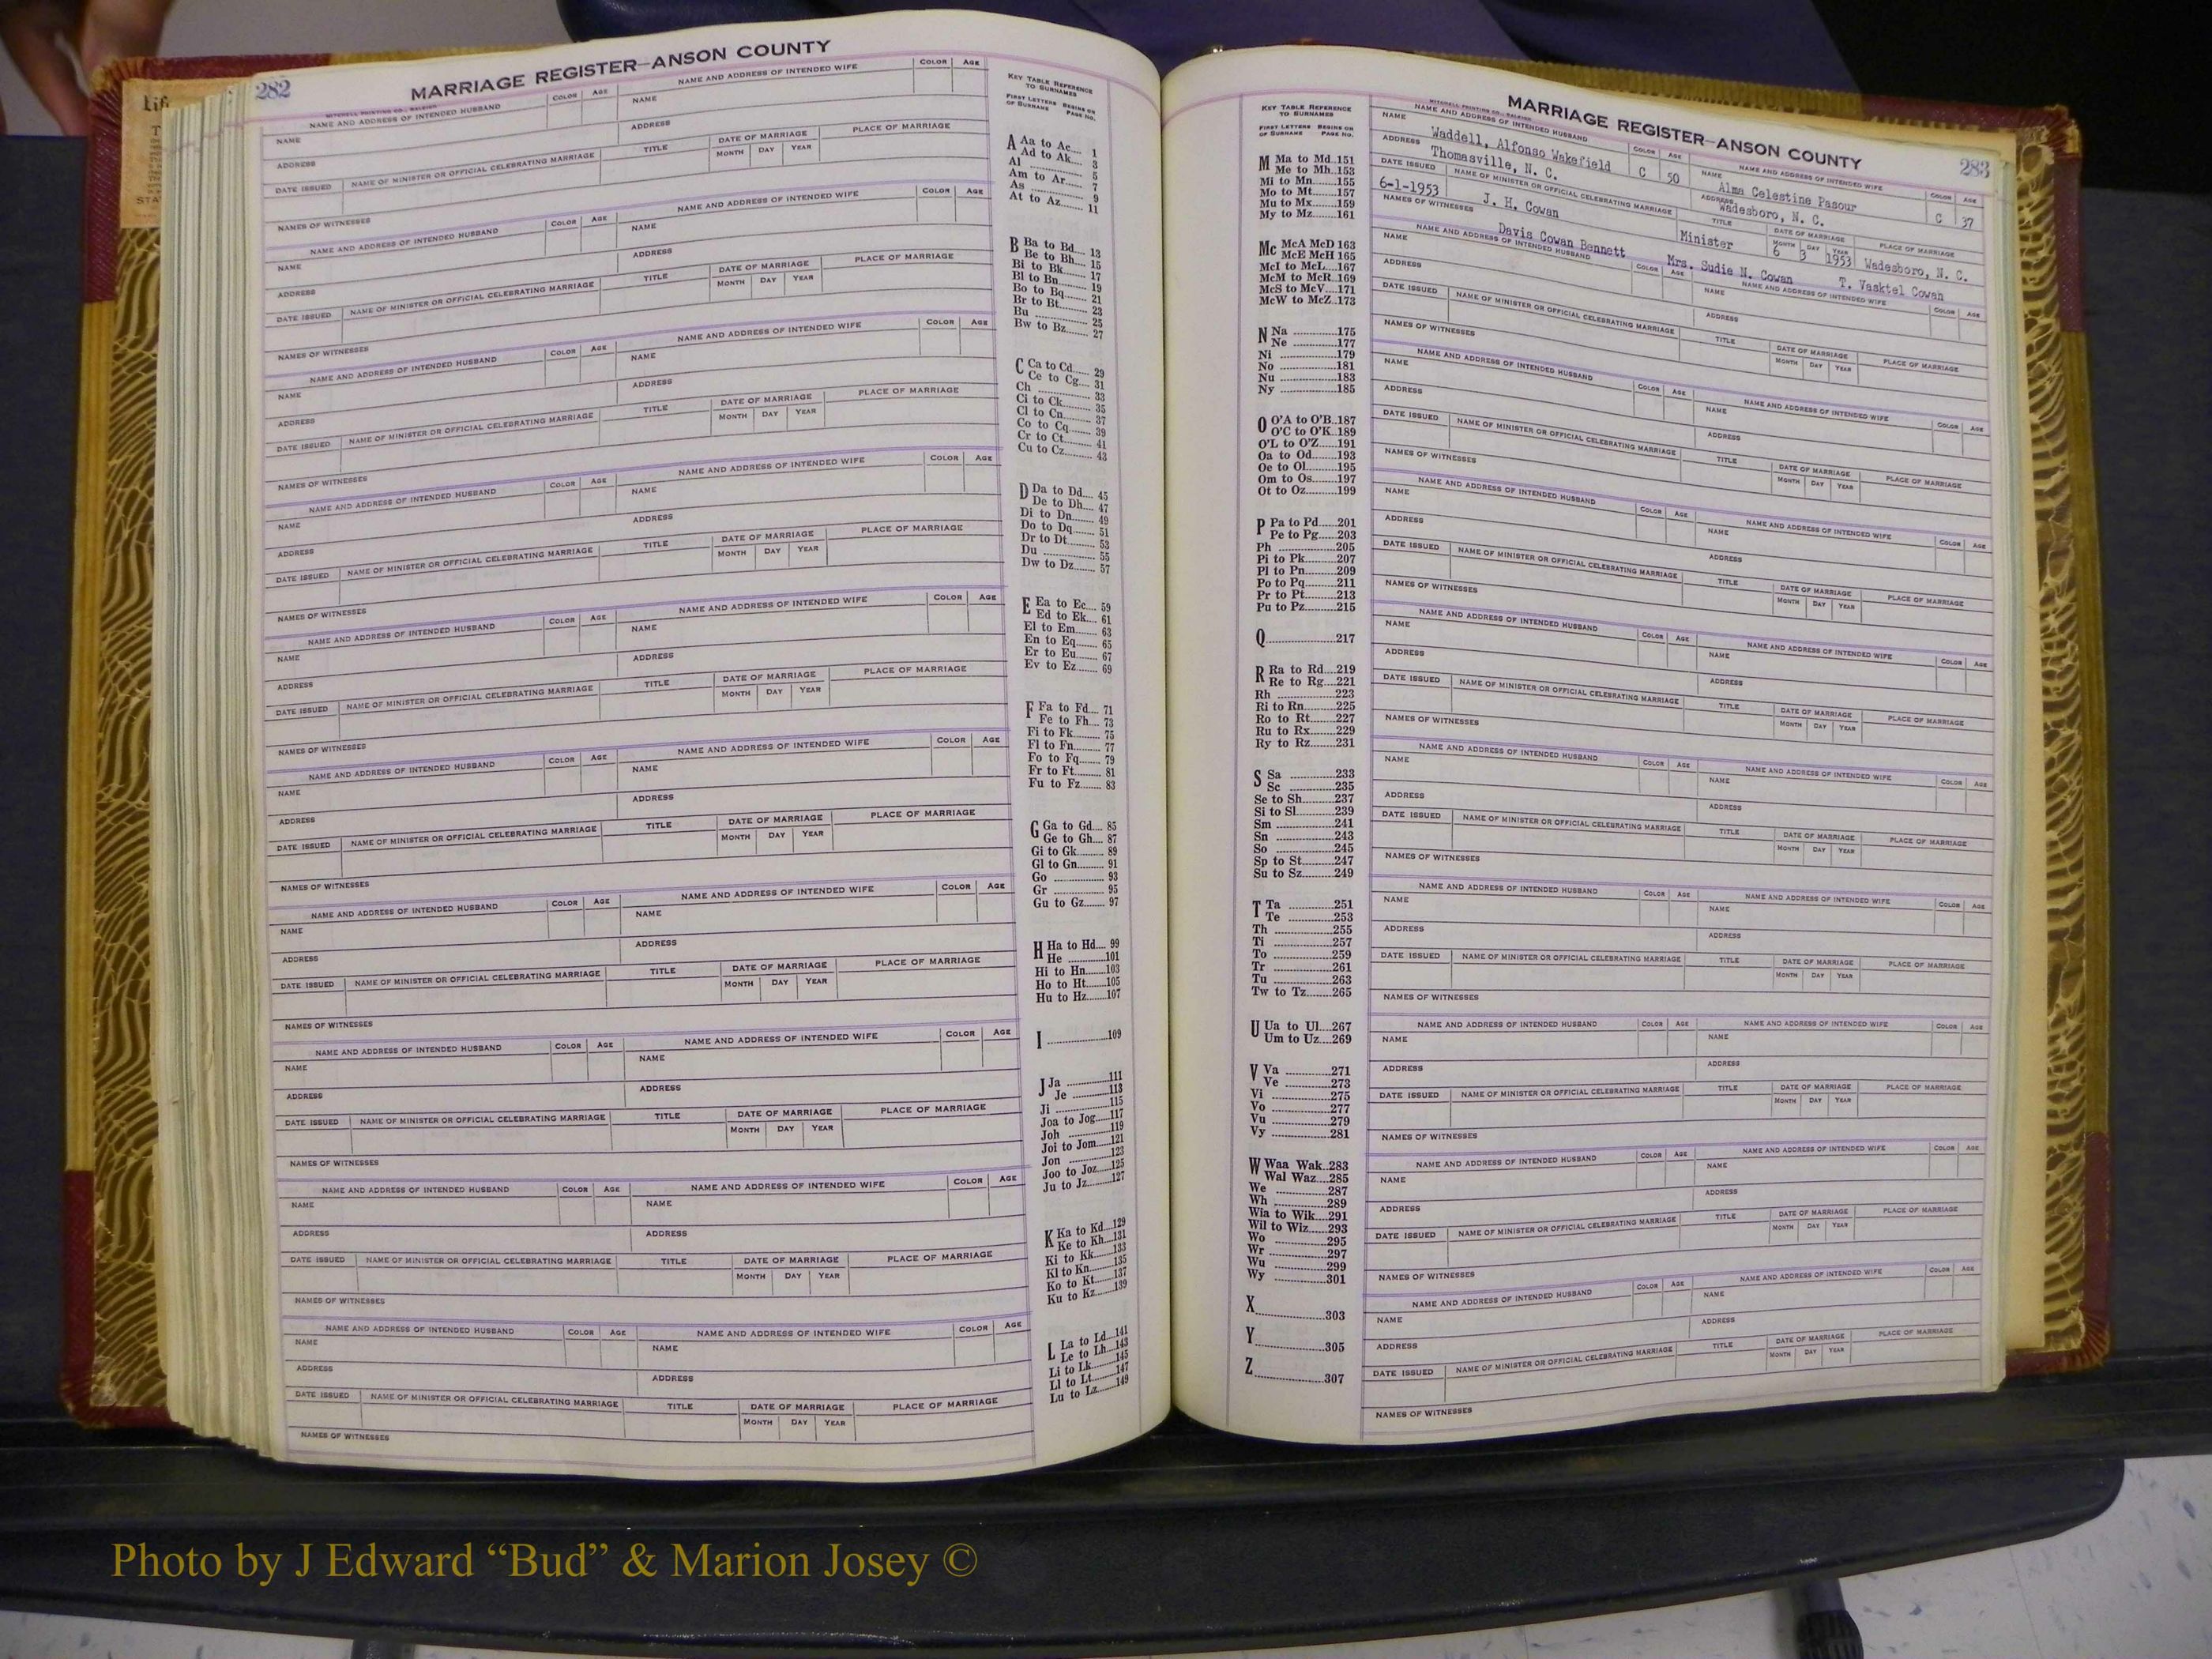 282
MARRIAGE REGISTER—ANSON COUNTY
MITCHELL PRINTING CO., RALEIGH
NAME AND ADDRESS OF INTENDED HUSBAND COLOR AGE NAME AND ADDRESS OF INTENDED WIFE COLOR AGE
NAME NAME
ADDRESS ADDRESS
DATE ISSUED NAME OF MINISTER OR OFFICIAL CELEBRATING MARRIAGE TITLE DATE OF MARRIAGE PLACE OF MARRIAGE
MONTH DAY YEAR
NAMES OF WITNESSES
NAME AND ADDRESS OF INTENDED HUSBAND COLOR AGE NAME AND ADDRESS OF INTENDED WIFE COLOR AGE
NAME NAME
ADDRESS ADDRESS
DATE ISSUED NAME OF MINISTER OR OFFICIAL CELEBRATING MARRIAGE TITLE DATE OF MARRIAGE PLACE OF MARRIAGE
MONTH DAY YEAR
NAMES OF WITNESSES
NAME AND ADDRESS OF INTENDED HUSBAND COLOR AGE NAME AND ADDRESS OF INTENDED WIFE COLOR AGE
NAME NAME
ADDRESS ADDRESS
DATE ISSUED NAME OF MINISTER OR OFFICIAL CELEBRATING MARRIAGE TITLE DATE OF MARRIAGE PLACE OF MARRIAGE
MONTH DAY YEAR
NAMES OF WITNESSES
KEY TABLE REFERENCE
TO SURNAMES
FIRST LETTERS BEGINS ON
OF SURNAME PAGE NO.
A Aa to Ac.... 1
Ad to Ak.... 3
Al 5
Am to Ar..... 7
As 9
At to Az........ 11
B Ba to Bd.... 13
Be to Bh.... 15
Bi to Bk....... 17
Bl to Bn....... 19
Bo to Bq....... 21
Br to Bt........ 23
Bu 25
Bw to Bz....... 27
C Ca to Cd..... 29
Ce to Cg.... 31
Ch 33
Ci to Ck........ 35
Cl to Cn........ 37
Co to Cq....... 39
Cr to Ct........ 41
Cu to Cz........ 43
D Da to Dd.... 45
De to Dh.... 47
Di to Dn....... 49
Do to Dq...... 51
Dr to Dt....... 53
Du 55
Dw to Dz....... 57
E Ea to Ec.... 59
Ed to Ek.... 61
El to Em....... 63
En to Eq....... 65
Er to Eu....... 67
Ev to Ez....... 69
F Fa to Fd.... 71
Fe to Fh.... 73
Fi to Fk....... 75
Fl to Fn....... 77
Fo to Fq....... 79
Fr to Ft........ 81
Fu to Fz........ 83
G Ga to Gd.... 85
Ge to Gh.... 87
Gi to Gk......... 89
Gl to Gn......... 91
Go 93
Gr 95
Gu to Gz........ 97
H Ha to Hd.... 99
He 101
Hi to Hn.......103
Ho to Ht.......105
Hu to Hz.......107
I 109
J Ja 111
Je 113
Ji 115
Joa to Jog.....117
Joh 119
Joi to Jom.....121
Jon 123
Joo to Joz.....125
Ju to Jz........127
K Ka to Kd...129
Ke to Kh...131
Ki to Kk.......133
Kl to Kn.......135
Ko to Kt.......137
Ku to Kz.......139
L La to Ld...141
Le to Lh...143
Li to Lk........145
Ll to Lt........147
Lu to Lz........149
KEY TABLE REFERENCE
TO SURNAMES
FIRST LETTERS BEGINS ON
OF SURNAME PAGE NO.
M Ma to Md..151
Me to Mh..153
Mi to Mn.......155
Mo to Mt.......157
Mu to Mx......159
My to Mz......161
Mc McA McD 163
McE McH 165
McI to McL....167
McM to McR..169
McS to McV....171
McW to McZ..173
N Na 175
Ne 177
Ni 179
No 181
Nu 183
Ny 185
O O'A to O'B..187
O'C to O'K..189
O'L to O'Z......191
Oa to Od........193
Oe to Ol.........195
Om to Os........197
Ot to Oz.........199
P Pa to Pd......201
Pe to Pg......203
Ph 205
Pi to Pk.........207
Pl to Pn.........209
Po to Pq.........211
Pr to Pt..........213
Pu to Pz.........215
Q 217
R Ra to Rd....219
Re to Rg....221
Rh 223
Ri to Rn.........225
Ro to Rt........227
Ru to Rx........229
Ry to Rz........231
S Sa 233
Sc 235
Se to Sh.........237
Si to Sl..........239
Sm 241
Sn 243
So 245
Sp to St.........247
Su to Sz.........249
T Ta 251
Te 253
Th 255
Ti 257
To 259
Tr 261
Tu 263
Tw to Tz........265
U Ua to Ul....267
Um to Uz....269
V Va 271
Ve 273
Vi 275
Vo 277
Vu 279
Vy 281
W Waa Wak..283
Wal Waz....285
We 287
Wh 289
Wia to Wik....291
Wil to Wiz......293
Wo 295
Wr 297
Wu 299
Wy 301
X 303
Y 305
Z 307
MARRIAGE REGISTER—ANSON COUNTY
283
MITCHELL PRINTING CO., RALEIGH
NAME AND ADDRESS OF INTENDED HUSBAND COLOR AGE NAME AND ADDRESS OF INTENDED WIFE COLOR AGE
NAME Waddell, Alfonso Wakefield C 50 NAME Alma Celestine Pasour C 37
ADDRESS Thomasville, N. C. ADDRESS Wadesboro, N. C.
DATE ISSUED NAME OF MINISTER OR OFFICIAL CELEBRATING MARRIAGE TITLE DATE OF MARRIAGE PLACE OF MARRIAGE
MONTH DAY YEAR
6-1-1953 J. H. Cowan Minister 6 3 1953 Wadesboro, N. C.
NAMES OF WITNESSES Davis Cowan Bennett Mrs. Sudie N. Cowan T. Vasktel Cowan
NAME AND ADDRESS OF INTENDED HUSBAND COLOR AGE NAME AND ADDRESS OF INTENDED WIFE COLOR AGE
NAME NAME
ADDRESS ADDRESS
DATE ISSUED NAME OF MINISTER OR OFFICIAL CELEBRATING MARRIAGE TITLE DATE OF MARRIAGE PLACE OF MARRIAGE
MONTH DAY YEAR
NAMES OF WITNESSES
Photo by J Edward “Bud” & Marion Josey ©